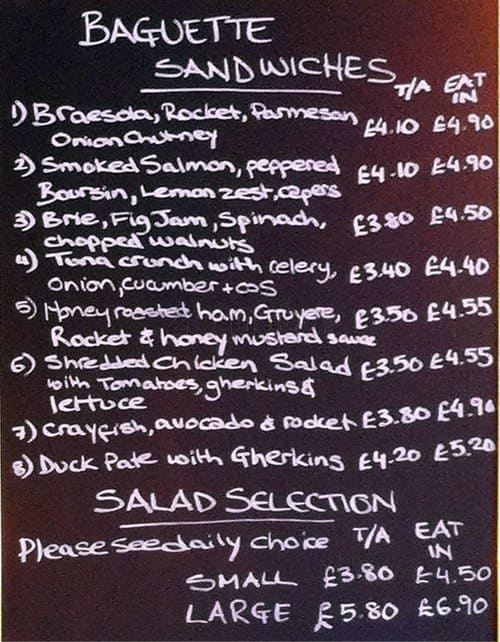 BAGUETTE
SANDWICHES
T/A EAT IN
1) Braesola, Rocket, Parmesan
Onion Chutney £4.10 £4.90
2) Smoked Salmon, peppered £4.10 £4.90
Boursin, Lemon zest, capers
3) Brie, Fig Jam, Spinach, £3.80 £4.50
chopped walnuts
4) Tuna crunch with celery, £3.40 £4.40
onion, cucumber + cos
5) Honey roasted ham, Gruyere, £3.50 £4.55
Rocket & honey mustard sauce
6) Shredded Chicken Salad £3.50 £4.55
with Tomatoes, gherkins &
lettuce
7) Crayfish, avocado & rocket £3.80 £4.90
8) Duck Pate with Gherkins £4.20 £5.20
SALAD SELECTION
Please see daily choice T/A EAT IN
SMALL £3.80 £4.50
LARGE £5.80 £6.90